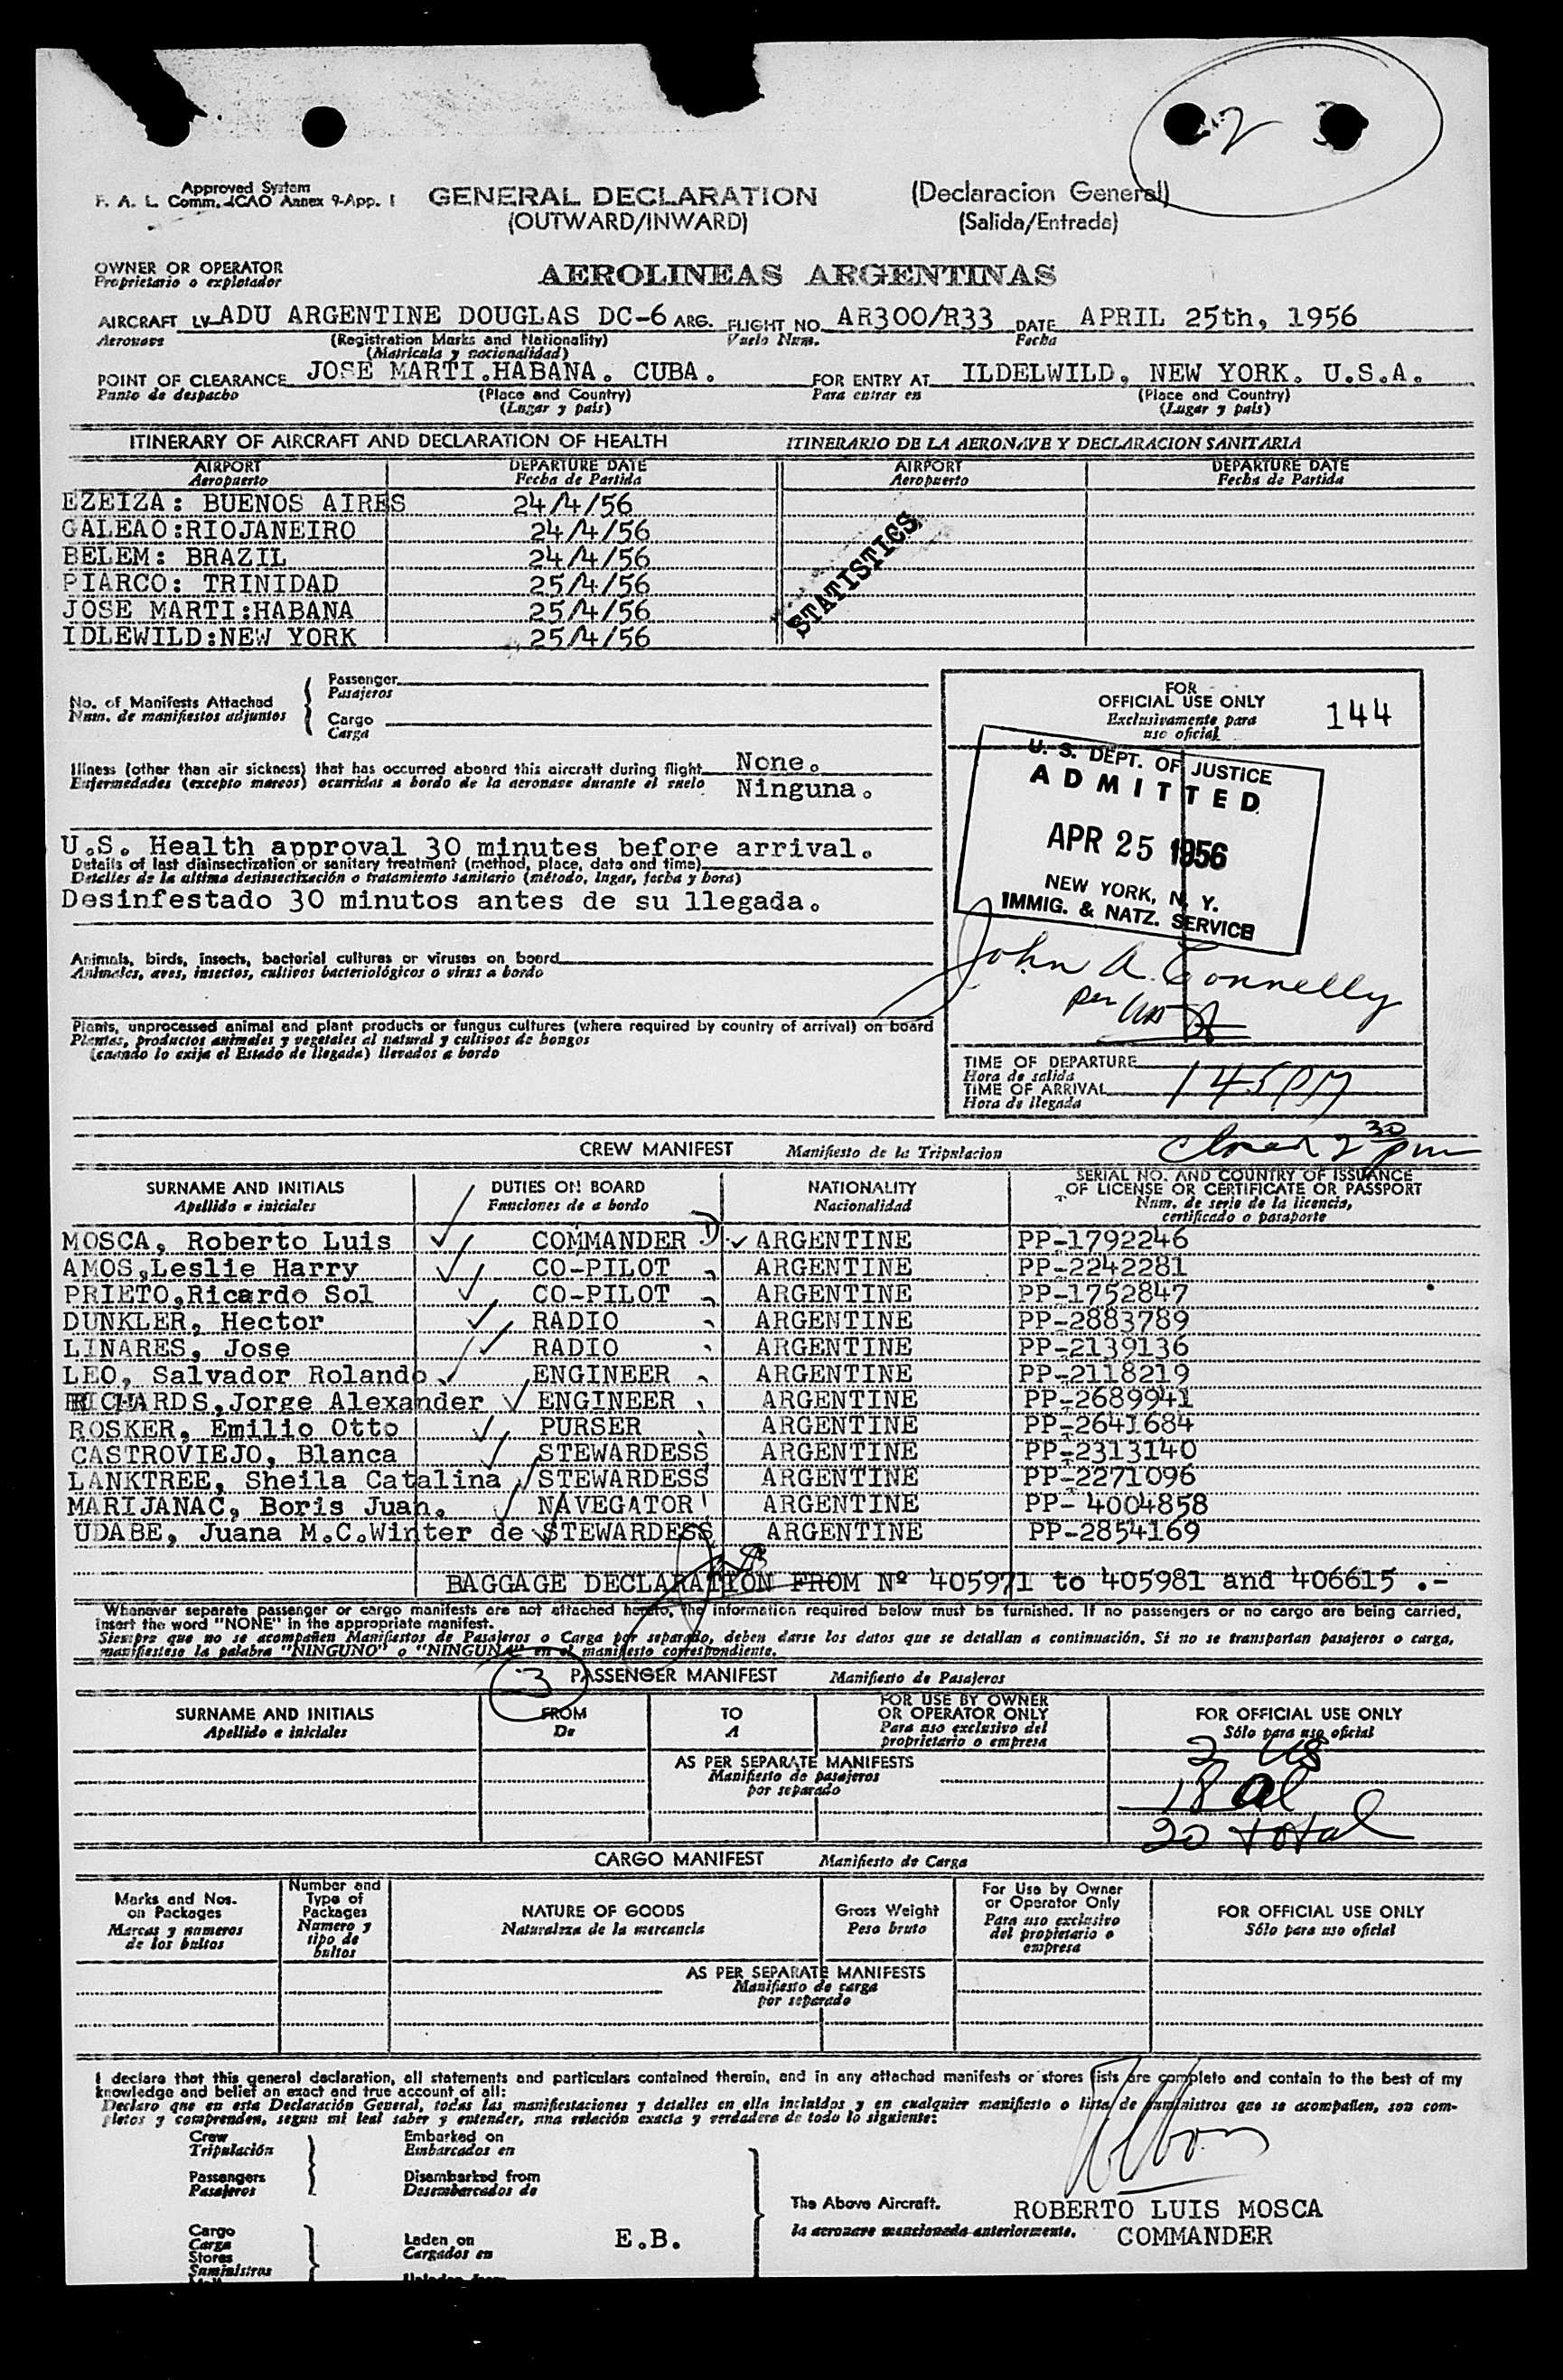 2
Approved System
F. A. L. Comm. ICAO Annex 9-App. 1
GENERAL DECLARATION
(OUTWARD/INWARD)
(Declaracion General)
(Salida/Entrada)
OWNER OR OPERATOR
Proprietario o explotador
AEROLINEAS ARGENTINAS
AIRCRAFT LV-ADU ARGENTINE DOUGLAS DC-6 ARG. FLIGHT NO. AR300/R33 DATE APRIL 25th, 1956
Aeronave (Registration Marks and Nationality) Vuelo Num. Fecha
(Matricula y nacionalidad)
POINT OF CLEARANCE JOSE MARTI.HABANA. CUBA. FOR ENTRY AT ILDELWILD, NEW YORK. U.S.A.
Punto de despacho (Place and Country) Para entrar en (Place and Country)
(Lugar y país) (Lugar y país)
ITINERARY OF AIRCRAFT AND DECLARATION OF HEALTH ITINERARIO DE LA AERONAVE Y DECLARACION SANITARIA
AIRPORT DEPARTURE DATE AIRPORT DEPARTURE DATE
Aeropuerto Fecha de Partida Aeropuerto Fecha de Partida
EZEIZA: BUENOS AIRES 24/4/56
GALEAO:RIOJANEIRO 24/4/56
BELEM: BRAZIL 24/4/56
PIARCO: TRINIDAD 25/4/56
JOSE MARTI:HABANA 25/4/56
IDLEWILD:NEW YORK 25/4/56
STATISTICS
No. of Manifests Attached
Num. de manifiestos adjuntos
Passenger
Pasajeros
Cargo
Carga
Illness (other than air sickness) that has occurred aboard this aircraft during flight None.
Enfermedades (excepto mareos) ocurridas a bordo de la aeronave durante el vuelo Ninguna.
U.S. Health approval 30 minutes before arrival.
Details of last disinsectization or sanitary treatment (method, place, date and time)
Detalles de la ultima desinsectización o tratamiento sanitario (método, lugar, fecha y hora)
Desinfestado 30 minutos antes de su llegada.
Animals, birds, insects, bacterial cultures or viruses on board
Animales, aves, insectos, cultivos bacteriológicos o virus a bordo
Plants, unprocessed animal and plant products or fungus cultures (where required by country of arrival) on board
Plantas, productos animales y vegetales al natural y cultivos de hongos
(cuando lo exija el Estado de llegada) llevados a bordo
FOR
OFFICIAL USE ONLY
Exclusivamente para
uso oficial
144
U. S. DEPT. OF JUSTICE
ADMITTED
APR 25 1956
NEW YORK, N. Y.
IMMIG. & NATZ. SERVICE
John A. Connelly
per
TIME OF DEPARTURE
Hora de salida
TIME OF ARRIVAL 145 PM
Hora de llegada
closed 2 30 pm
CREW MANIFEST Manifiesto de la Tripulacion
SURNAME AND INITIALS DUTIES ON BOARD NATIONALITY SERIAL NO. AND COUNTRY OF ISSUANCE
OF LICENSE OR CERTIFICATE OR PASSPORT
Apellido e iniciales Funciones de a bordo Nacionalidad Num. de serie de la licencia,
certificado o pasaporte
MOSCA, Roberto Luis COMMANDER ARGENTINE PP-1792246
AMOS,Leslie Harry CO-PILOT ARGENTINE PP-2242281
PRIETO,Ricardo Sol CO-PILOT ARGENTINE PP-1752847
DUNKLER, Hector RADIO ARGENTINE PP-2883789
LINARES, Jose RADIO ARGENTINE PP-2139136
LEO, Salvador Rolando ENGINEER ARGENTINE PP-2118219
RICHARDS,Jorge Alexander ENGINEER ARGENTINE PP-2689941
ROSKER, Emilio Otto PURSER ARGENTINE PP-2641684
CASTROVIEJO, Blanca STEWARDESS ARGENTINE PP-2313140
LANKTREE, Sheila Catalina STEWARDESS ARGENTINE PP-2271096
MARIJANAC, Boris Juan. NAVEGATOR ARGENTINE PP- 4004858
UDABE, Juana M.C.Winter de STEWARDESS ARGENTINE PP-2854169
BAGGAGE DECLARATION FROM Nº 405971 to 405981 and 406615 .-
Whenever separate passenger or cargo manifests are not attached hereto, the information required below must be furnished. If no passengers or no cargo are being carried,
insert the word "NONE" in the appropriate manifest.
Siempre que no se acompañen Manifiestos de Pasajeros o Carga por separado, deben darse los datos que se detallan a continuación. Si no se transportan pasajeros o carga,
manifiestese la palabra "NINGUNO" o "NINGUNA" en el manifiesto correspondiente.
3
PASSENGER MANIFEST Manifiesto de Pasajeros
SURNAME AND INITIALS FROM TO FOR USE BY OWNER
OR OPERATOR ONLY FOR OFFICIAL USE ONLY
Apellido e iniciales De A Para uso exclusivo del
proprietario o empresa Sólo para uso oficial
AS PER SEPARATE MANIFESTS
Manifiesto de pasajeros
por separado
2 US
18 al
20 total
CARGO MANIFEST Manifiesto de Carga
Marks and Nos.
on Packages
Marcas y numeros
de los bultos
Number and
Type of
Packages
Numero y
tipo de
bultos
NATURE OF GOODS
Naturalzza de la mercancia
Gross Weight
Peso bruto
For Use by Owner
or Operator Only
Para uso exclusivo
del propietario o
empresa
FOR OFFICIAL USE ONLY
Sólo para uso oficial
AS PER SEPARATE MANIFESTS
Manifiesto de carga
por separado
I declare that this general declaration, all statements and particulars contained therein, and in any attached manifests or stores lists are complete and contain to the best of my
knowledge and belief an exact and true account of all:
Declaro que en esta Declaración General, todas las manifestaciones y detalles en ella incluidos y en cualquier manifiesto o lista de suministros que se acompañen, son com-
pletos y comprenden, segun mi leal saber y entender, una relación exacta y verdadera de todo lo siguiente:
Crew
Tripulación
Passengers
Pasajeros
Embarked on
Embarcados en
Disembarked from
Desembarcados de
Cargo
Carga
Stores
Suministros
Laden on
Cargados en
E.B.
The Above Aircraft.
la aeronave mencionada anteriormente.
ROBERTO LUIS MOSCA
COMMANDER